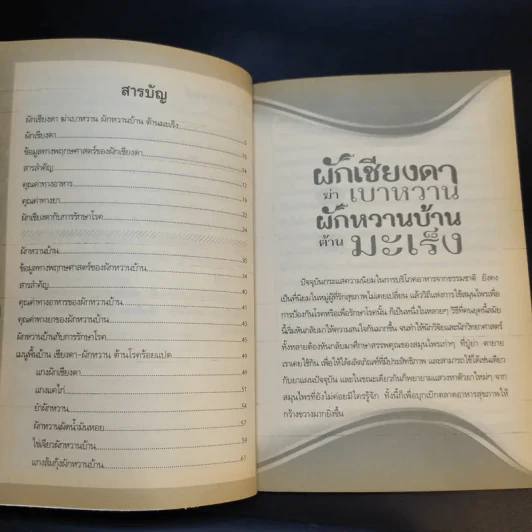 สารบัญ
ผักเชียงดา ฆ่าเบาหวาน ผักหวานบ้าน ต้านมะเร็ง
ผักเชียงดา 3
ข้อมูลทางพฤกษศาสตร์ของผักเชียงดา 10
สารสำคัญ 14
คุณค่าทางอาหาร 16
คุณค่าทางยา 22
ผักเชียงดากับการรักษาโรค 24
ผักหวานบ้าน 35
ข้อมูลทางพฤกษศาสตร์ของผักหวานบ้าน 38
สารสำคัญ 40
คุณค่าทางอาหารของผักหวานบ้าน 41
คุณค่าทางยาของผักหวานบ้าน 43
ผักหวานบ้านกับการรักษาโรค 45
เมนูพื้นบ้าน เชียงดา-ผักหวาน ต้านโรคร้อยแปด 49
แกงผักเชียงดา 51
แกงแคไก่ 54
ยำผักหวาน 57
ผักหวานผัดน้ำมันหอย 59
ไข่เจียวผักหวานบ้าน 61
แกงส้มกุ้งผักหวานบ้าน
ผักเชียงดา
ฆ่า เบาหวาน
ผักหวานบ้าน
ต้าน มะเร็ง
ปัจจุบันกระแสความนิยมในการบริโภคอาหารจากธรรมชาติ ยังคง
เป็นที่นิยมในหมู่ผู้รักสุขภาพไม่เคยเปลี่ยน แล้ววิถีแห่งการใช้สมุนไพรเพื่อ
การป้องกันโรคหรือเพื่อรักษาโรคนั้น ก็เป็นหนึ่งในหลายๆ วิธีที่คนยุคนี้สมัย
นี้เริ่มหันกลับมาให้ความสนใจกันมากขึ้น จนทำให้นักวิจัยและนักวิทยาศาสตร์
ทั้งหลายต้องหันกลับมาศึกษาสรรพคุณของสมุนไพรเก่าๆ ที่ปู่ยา ตายาย
เราเคยใช้กัน เพื่อให้ได้ผลิตภัณฑ์ที่มีประสิทธิภาพ และสามารถใช้ได้เช่นเดียว
กับยาแผนปัจจุบัน และในขณะเดียวกันก็พยายามแสวงหาตัวยาใหม่ๆ จาก
สมุนไพรที่ยังไม่ค่อยมีใครรู้จัก ทั้งนี้ก็เพื่อบุกเบิกตลาดอาหารสุขภาพให้
กว้างขวางมากยิ่งขึ้น